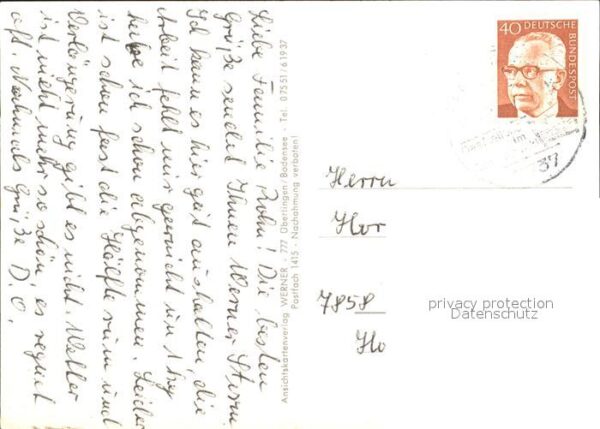 Liebe Familie Rohn! Die besten
Grüße sendet Ihnen Werner Storm.
Ich kann es hier gut aushalten, die
Arbeit fehlt mir garnicht und kg
habe ich schon abgenommen. Leider
ist schon fast die Hälfte rum und
Verlängerung gibt es nicht. Wetter
ist nicht mehr so schön, es regnet
oft. Nochmals Grüße D.O.
Ansichtskartenverlag WERNER - 777 Überlingen/Bodensee - Tel. 07551/61937
Postfach 1415 - Nachahmung verboten!
40 DEUTSCHE
BUNDESPOST
Herrn
Hor
7858
Ho
privacy protection
Datenschutz